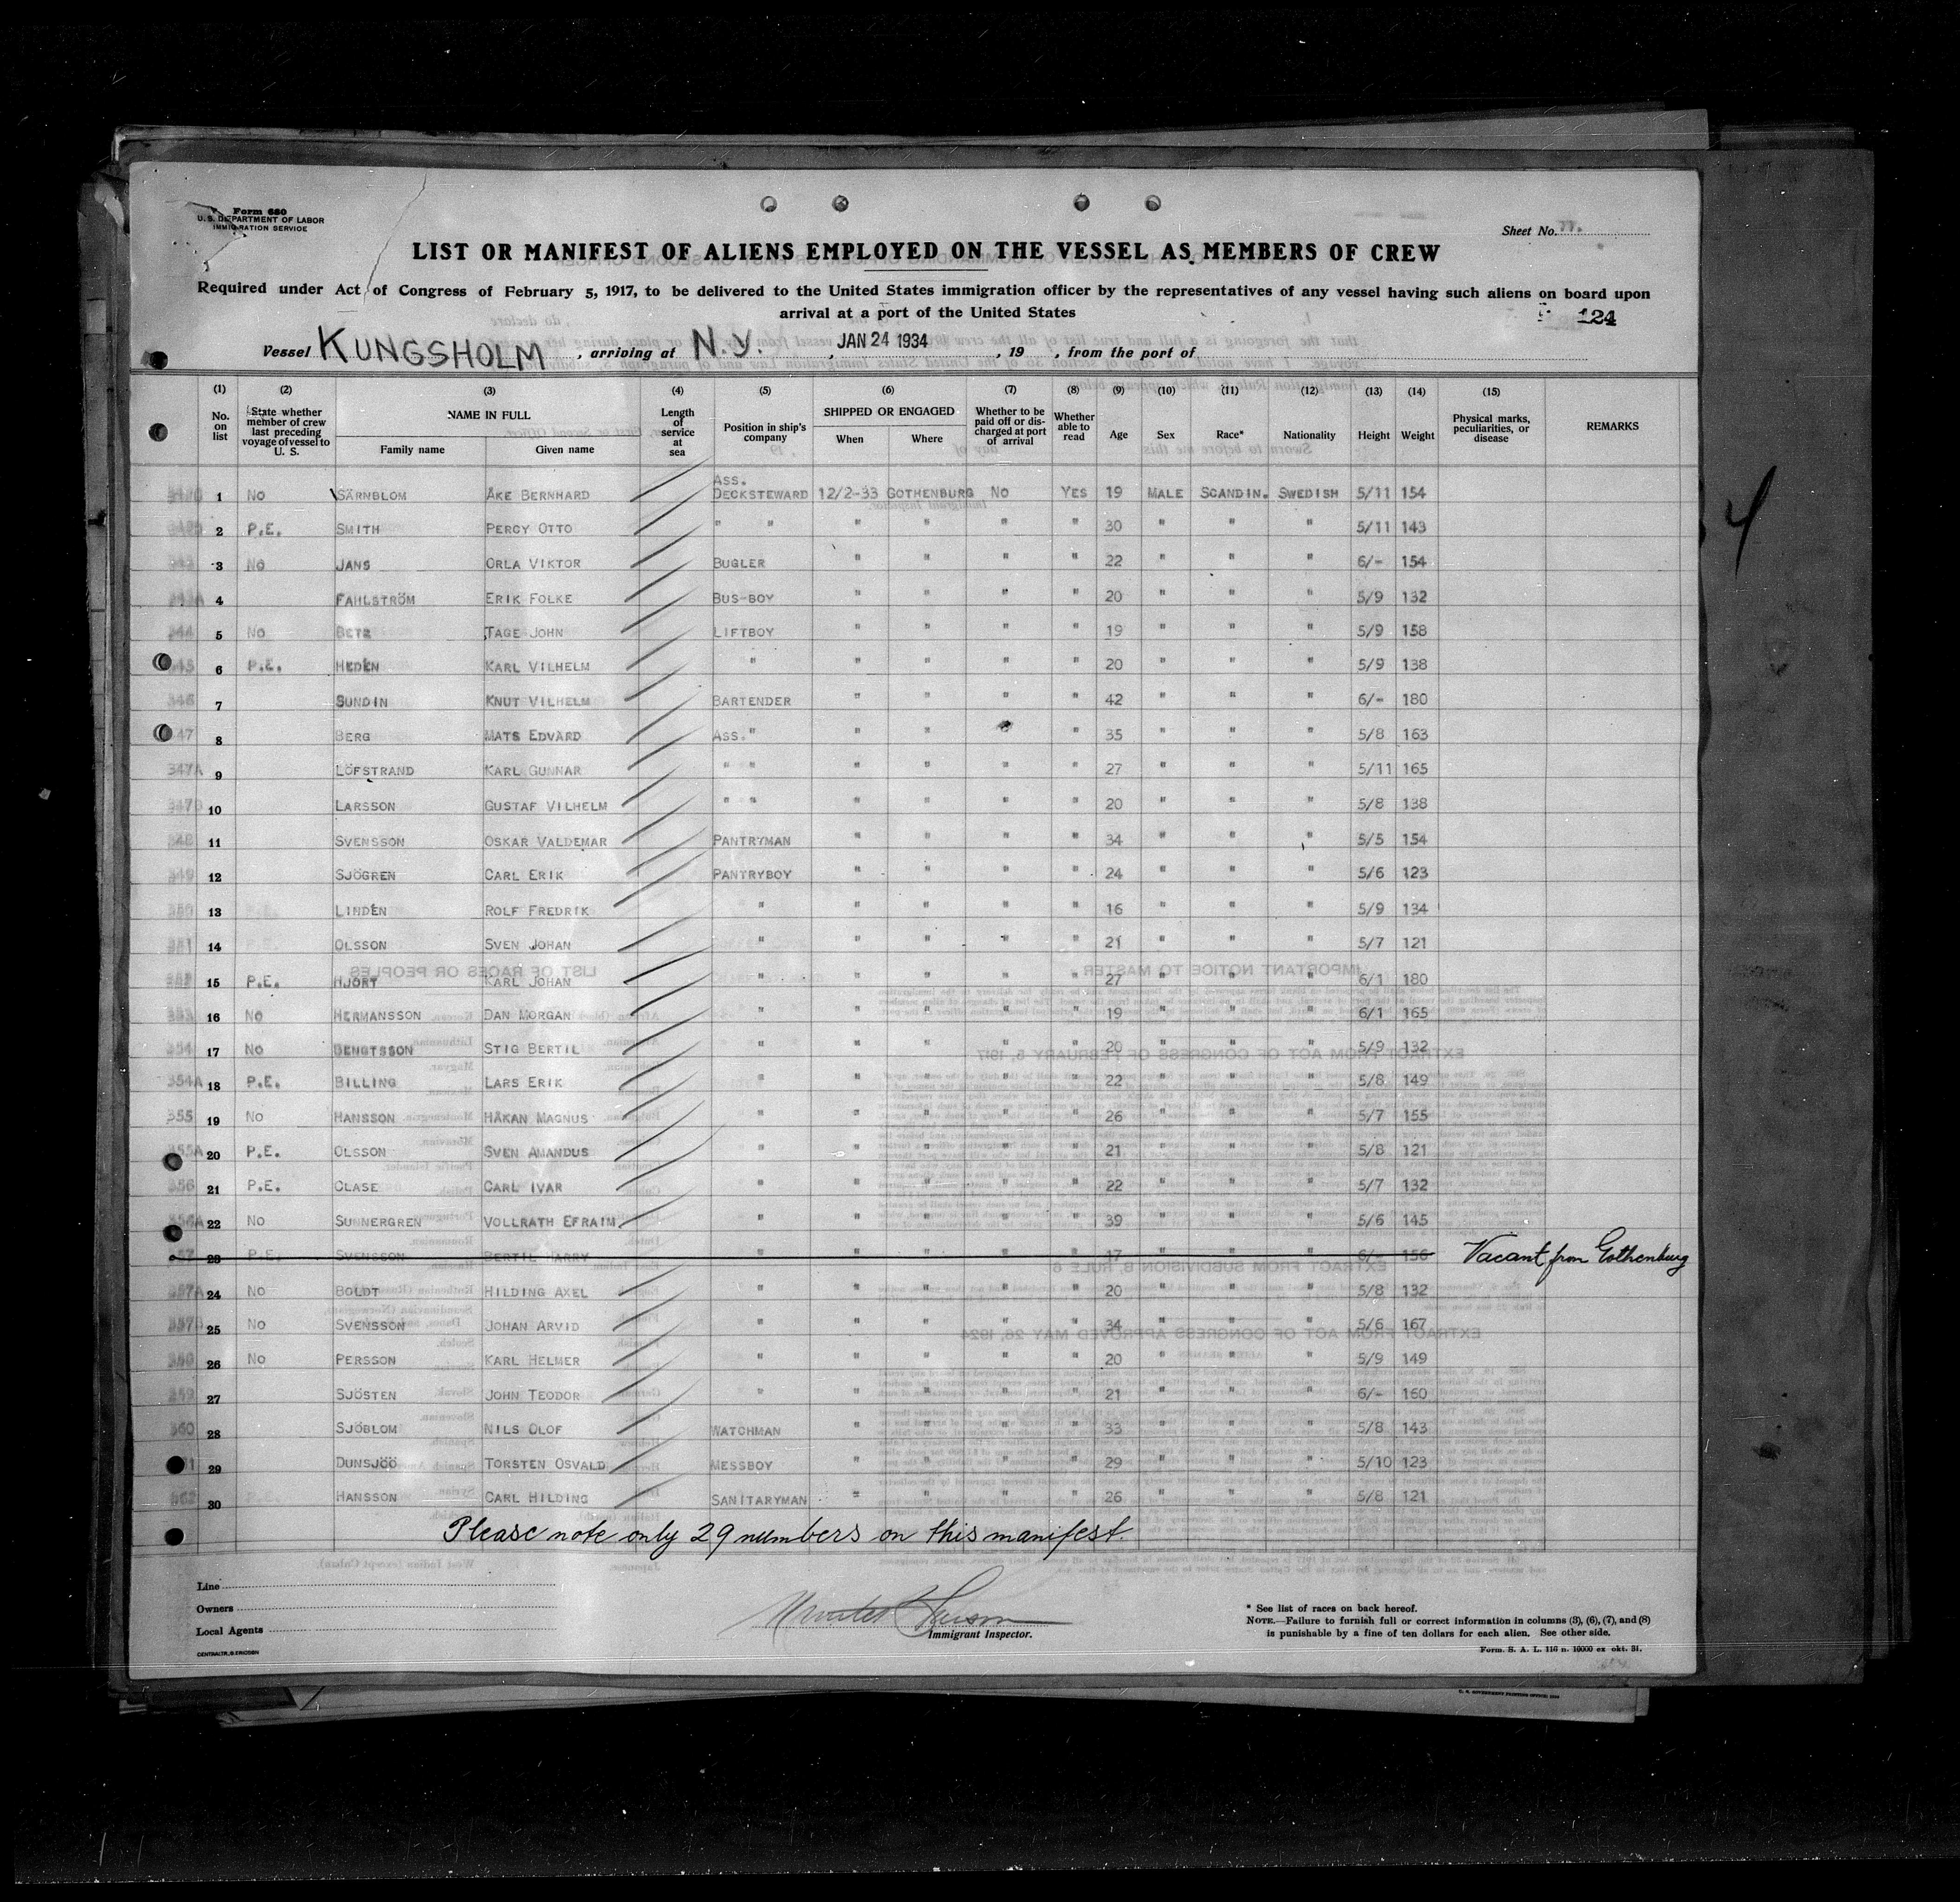 Form 680
U. S. DEPARTMENT OF LABOR
IMMIGRATION SERVICE
Sheet No.
LIST OR MANIFEST OF ALIENS EMPLOYED ON THE VESSEL AS MEMBERS OF CREW
Required under Act of Congress of February 5, 1917, to be delivered to the United States immigration officer by the representatives of any vessel having such aliens on board upon
arrival at a port of the United States
124
Vessel KUNGSHOLM, arriving at N.Y., JAN 24 1934, 19 , from the port of
(1) (2) (3) (4) (5) (6) (7) (8) (9) (10) (11) (12) (13) (14) (15)
No. on list State whether member of crew last preceding voyage of vessel to U. S. NAME IN FULL Family name Given name Length of service at sea Position in ship's company SHIPPED OR ENGAGED When Where Whether to be paid off or discharged at port of arrival Whether able to read Age Sex Race* Nationality Height Weight Physical marks, peculiarities, or disease REMARKS
1 NO SÄRNBLOM ÅKE BERNHARD ASS. DECKSTEWARD 12/2-33 GOTHENBURG NO YES 19 MALE SCANDIN. SWEDISH 5/11 154
2 P.E. SMITH PERCY OTTO " " " " " " 30 " " " 5/11 143
3 NO JANS ORLA VIKTOR BUGLER " " " " 22 " " " 6/- 154
4 FAHLSTRÖM ERIK FOLKE BUS-BOY " " " " 20 " " " 5/9 132
5 NO TAGE JOHN LIFTBOY " " " " 19 " " " 5/9 158
6 P.E. HEDÉN KARL VILHELM " " " " " 20 " " " 5/9 138
346 7 SUNDIN KNUT VILHELM BARTENDER " " " " 42 " " " 6/- 180
47 8 BERG MATS EDVARD ASS." " " " " 35 " " " 5/8 163
347A 9 LÖFSTRAND KARL GUNNAR " " " " " " 27 " " " 5/11 165
347B 10 LARSSON GUSTAF VILHELM " " " " " " 20 " " " 5/8 138
348 11 SVENSSON OSKAR VALDEMAR PANTRYMAN " " " " 34 " " " 5/5 154
349 12 SJÖGREN CARL ERIK PANTRYBOY " " " " 24 " " " 5/6 123
350 13 LINDÉN ROLF FREDRIK " " " " " 16 " " " 5/9 134
351 14 OLSSON SVEN JOHAN " " " " " 21 " " " 5/7 121
352 15 P.E. HJORT KARL JOHAN " " " " " 27 " " " 6/1 180
353 16 NO HERMANSSON DAN MORGAN " " " " " 19 " " " 6/1 165
354 17 NO BENGTSSON STIG BERTIL " " " " " 20 " " " 5/9 132
354A 18 P.E. BILLING LARS ERIK " " " " " 22 " " " 5/8 149
355 19 NO HANSSON HÅKAN MAGNUS " " " " " 26 " " " 5/7 155
355A 20 P.E. OLSSON SVEN AMANDUS " " " " " 21 " " " 5/8 121
356 21 P.E. CLASE CARL IVAR " " " " " 22 " " " 5/7 132
356A 22 NO SUNNERGREN VOLLRATH EFRAIM " " " " " 39 " " " 5/6 145
357 23 P.E. SVENSSON BERTIL HARRY " " " " " 17 " " " 6/- 156 Vacant from Gothenburg
357A 24 NO BOLDT HILDING AXEL " " " " " 20 " " " 5/8 132
357B 25 NO SVENSSON JOHAN ARVID " " " " " 34 " " " 5/6 167
26 NO PERSSON KARL HELMER " " " " " 20 " " " 5/9 149
359 27 SJÖSTEN JOHN TEODOR " " " " " 21 " " " 6/- 160
360 28 SJÖBLOM NILS OLOF WATCHMAN " " " " 33 " " " 5/8 143
29 DUNSJÖÖ TORSTEN OSVALD MESSBOY " " " " 29 " " " 5/10 123
362 30 HANSSON CARL HILDING SANITARYMAN " " " " 26 " " " 5/8 121
Please note only 29 numbers on this manifest.
4
Line
Owners
Local Agents
CENTRALTR. G. ERICSON
Immigrant Inspector.
* See list of races on back hereof.
NOTE.—Failure to furnish full or correct information in columns (3), (6), (7), and (8)
is punishable by a fine of ten dollars for each alien. See other side.
Form. S. A. L. 116 n. 10000 ex okt. 31.